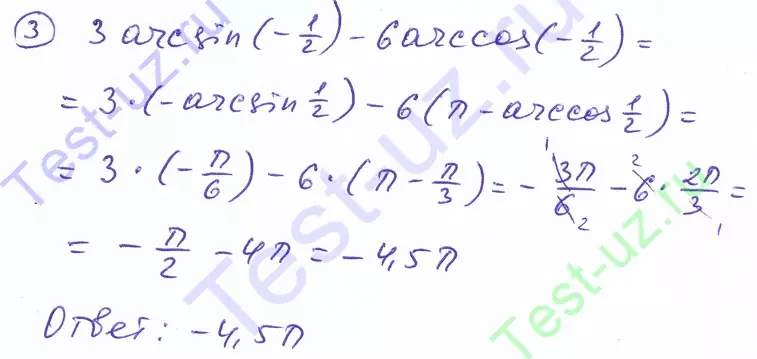 ③ 3 arcsin(-1/2) - 6 arccos(-1/2) =
= 3 · (-arcsin 1/2) - 6 (π - arccos 1/2) =
= 3 · (-π/6) - 6 · (π - π/3) = - 3π/6 - 6 · 2π/3 =
= - π/2 - 4π = - 4,5π
Ответ: -4,5π
Test-uz.ru
Test-uz.ru
Test-uz.ru